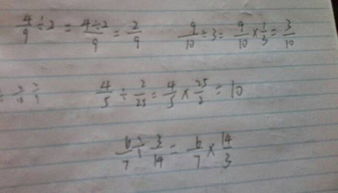 4/9 ÷ 2 = 4÷2/9 = 2/9    9/10 ÷ 3 = 9/10 × 1/3 = 3/10
4/5 ÷ 2/25 = 4/5 × 25/2 = 10
6/7 ÷ 3/14 = 6/7 × 14/3